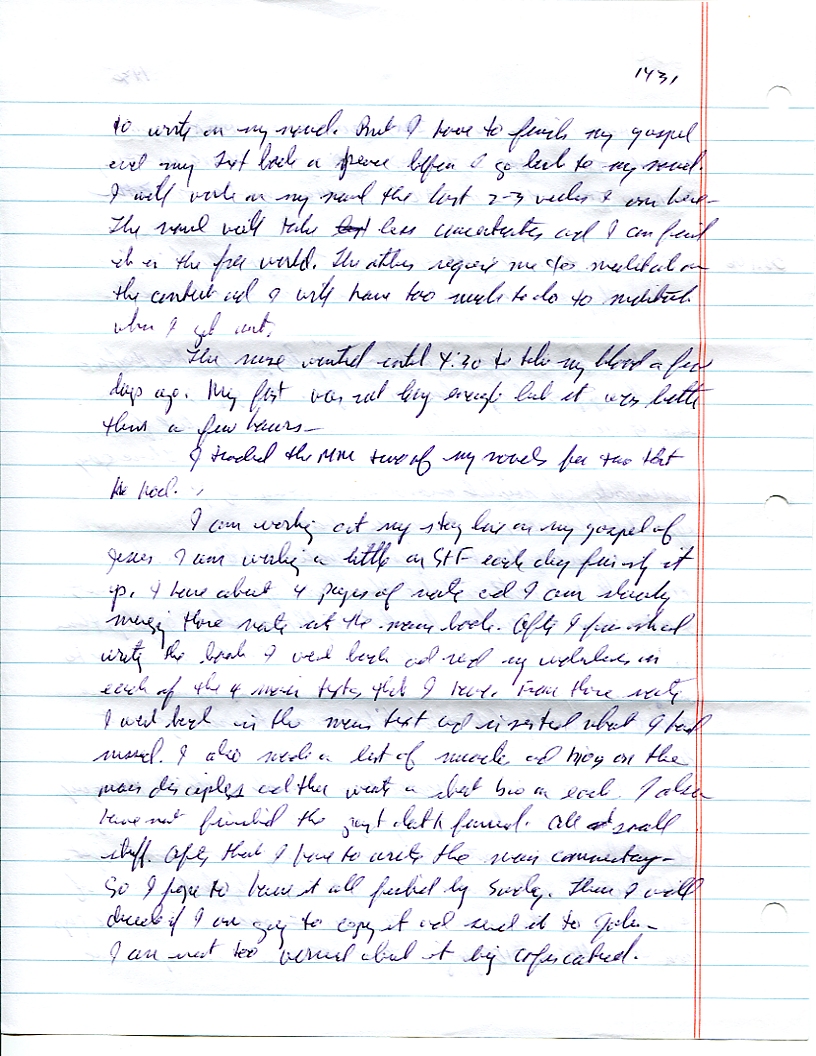 1431
to write on my novel. But I have to finish my gospel
and my text book on before I go back to my novel.
I will work on my novel the last 2-3 weeks I am here-
The novel will take less concentration and I can finish
it in the free world. The others require me to meditate on
the content and I will have too much to do to meditate
when I get out.
The nurse waited until 4:30 to take my blood a few
days ago. My fast was not long enough but it was better
than a few hours-
I traded the MM two of my novels for two that
he had.
I am working at my story line on my gospel of
Jesus I am working a little on each day finishing it
up. I have about 4 pages of notes and I am slowly
merging those notes into the main book. After I finished
writing the book I went back and read my in
each of the 4 main texts that I have. From those notes
I went back in the main text and inserted what I had
missed. I also made a list of miracles and on the
main disciples and then wrote a short bio on each. I also
have not finished the funeral. All small
stuff. After that I have to write the main commentary-
So I hope to have it all finished by Sunday. Then I will
decide if I am going to copy it and send it to John-
I am not too worried about it being confiscated.